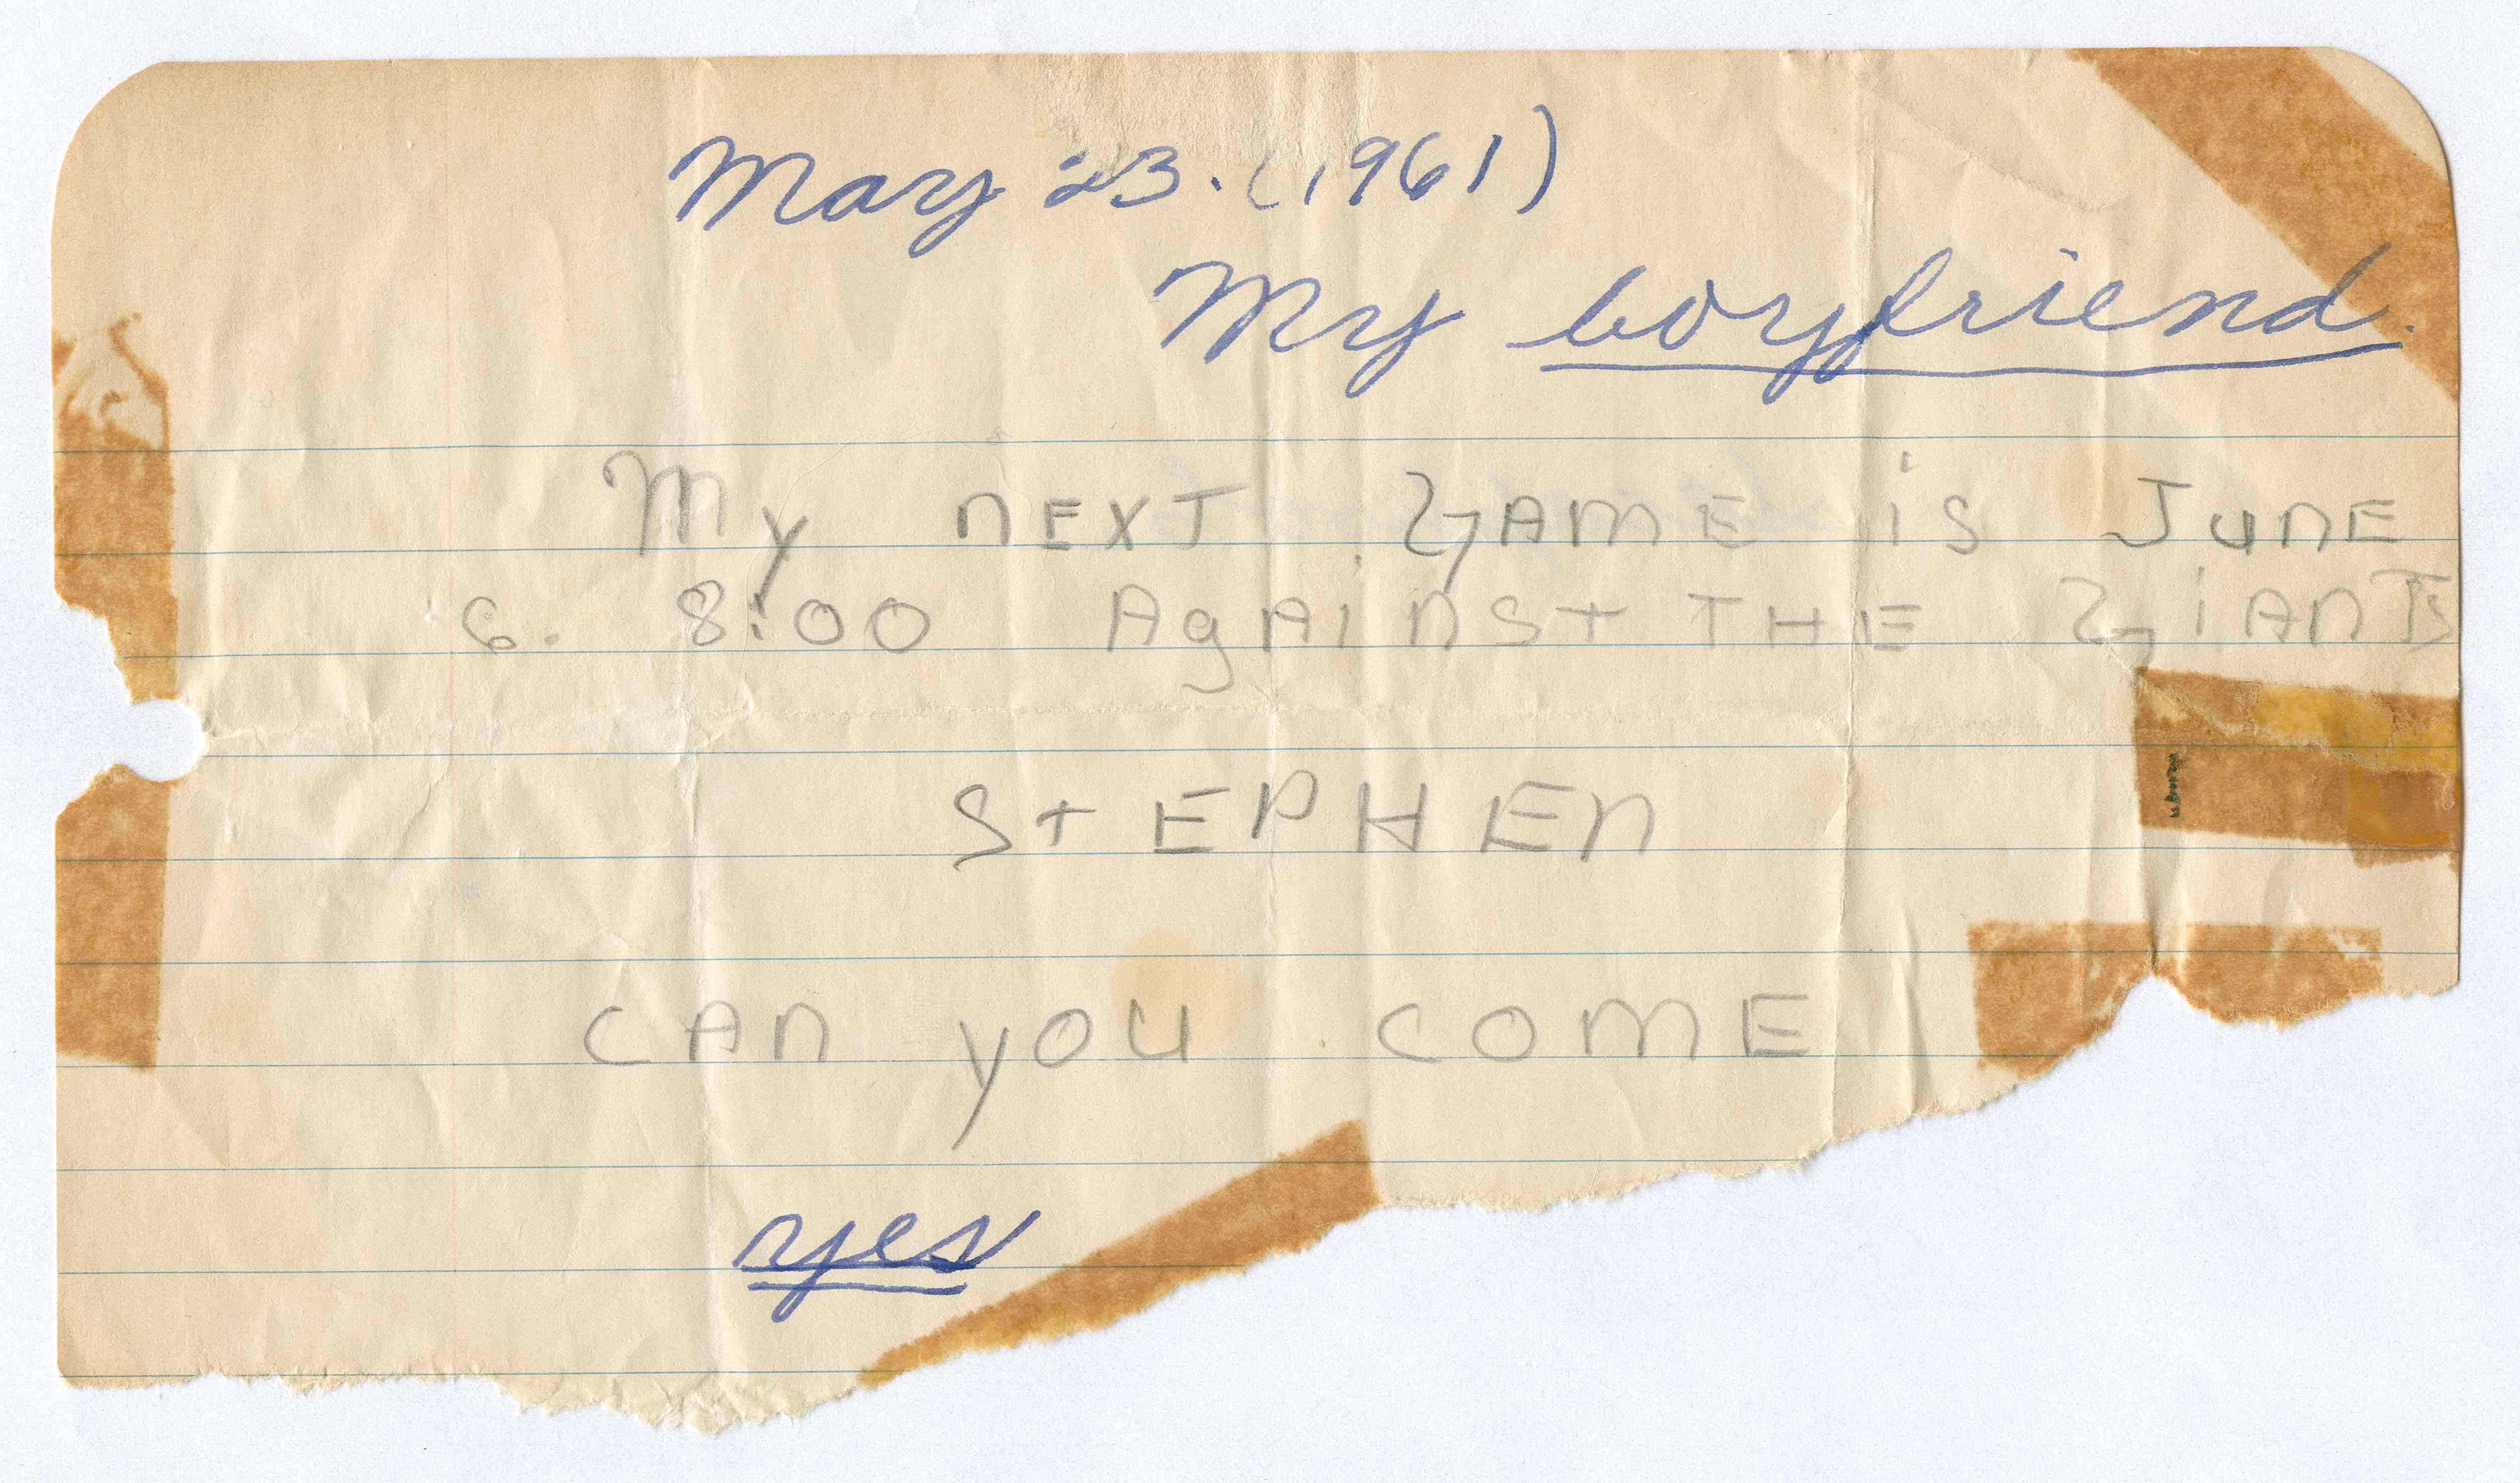 May 23. (1961)
My boyfriend.
My nEXT GAME is JunE
6. 8:00 AgAinSt THE GiAnTs
StEPHEn
CAn you COmE
yes